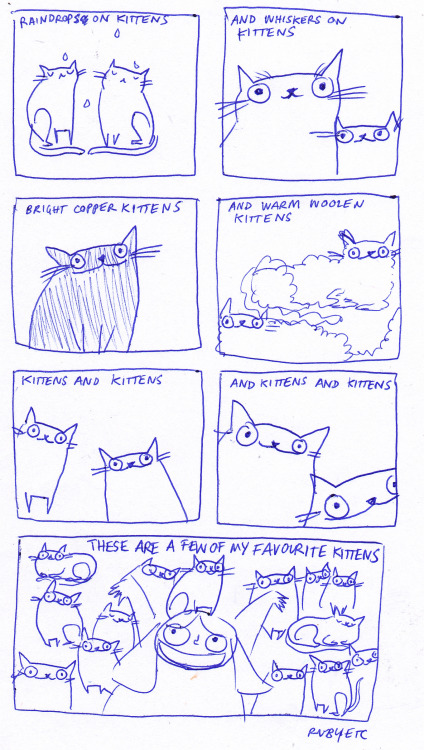 RAINDROPS ON KITTENS
AND WHISKERS ON
KITTENS
BRIGHT COPPER KITTENS
AND WARM WOOLEN
KITTENS
KITTENS AND KITTENS
AND KITTENS AND KITTENS
THESE ARE A FEW OF MY FAVOURITE KITTENS
RUBYETC